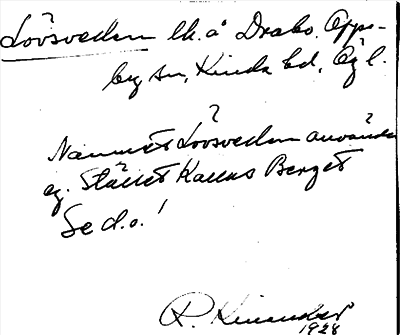 Lövsveden lh. å Drabo, Opp-
by sn, Kinda hd, Ög l.
Namnet Lövsveden användes
ej. Stället kallas Berget
Se d.o.!
R. Kinander
1928